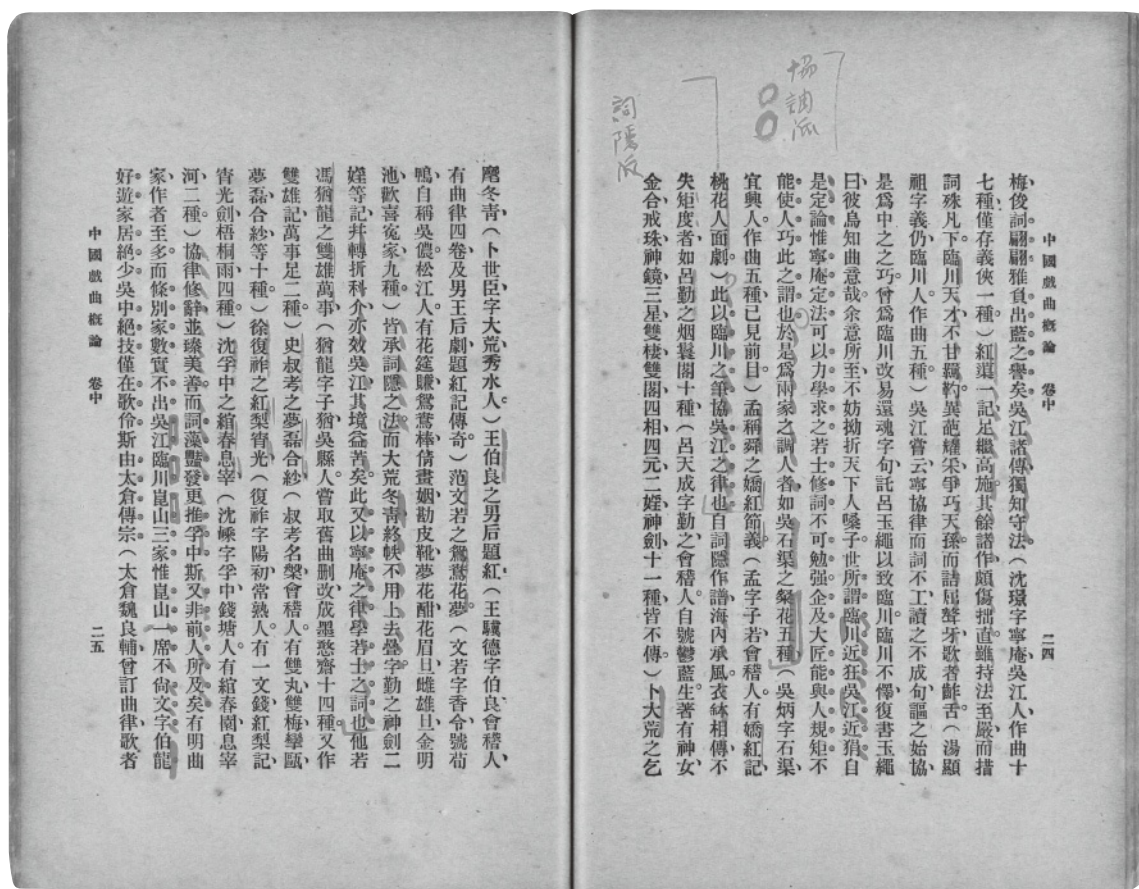 協調派
詞隱派
中國戲曲概論 卷中 二四
梅俊詞翩翩雅負出藍之譽矣吳江諸傳獨知守法（沈璟字寧庵吳江人作曲十
七種僅存義俠一種）紅蕖一記足繼高施其餘諸作頗傷拙直雖持法至嚴而措
詞殊凡下臨川天才不甘羈靮異葩耀采爭巧天孫而詰屈聱牙歌者齚舌（湯顯
祖字義仍臨川人作曲五種）吳江嘗云寧協律而詞不工讀之不成句謳之始協
是爲中之之巧曾爲臨川改易還魂字句託呂玉繩以致臨川臨川不懌復書玉繩
曰彼烏知曲意哉余意所至不妨拗折天下人嗓子世所謂臨川近狂吳江近狷自
是定論惟寧庵定法可以力學求之若士修詞不可勉强企及大匠能與人規矩不
能使人巧此之謂也於是爲兩家之調人者如吳石渠之粲花五種（吳炳字石渠
宜興人作曲五種已見前目）孟稱舜之嬌紅節義（孟字子若會稽人有嬌紅記
桃花人面劇）此以臨川之筆協吳江之律也自詞隱作譜海內承風衣鉢相傳不
失矩度者如呂勤之烟鬟閣十種（呂天成字勤之會稽人自號鬱藍生著有神女
金合戒珠神鏡三星雙棲雙閣四相四元二媱神劍十一種皆不傳）卜大荒之乞
麾冬靑（卜世臣字大荒秀水人）王伯良之男后題紅（王驥德字伯良會稽人
有曲律四卷及男王后劇題紅記傳奇）范文若之鴛鴦花夢（文若字香令號荀
鴨自稱吳儂松江人有花筵賺鴛鴦棒倩畫姻勘皮靴夢花酣花眉旦雌雄旦金明
池歡喜寃家九種）皆承詞隱之法而大荒冬靑終帙不用上去疊字勤之神劍二
媱等記幷轉折科介亦效吳江其境益苦矣此又以寧庵之律學若士之詞也他若
馮猶龍之雙雄萬事（猶龍字子猶吳縣人嘗取舊曲删改成墨憨齋十四種又作
雙雄記萬事足二種）史叔考之夢磊合紗（叔考名槃會稽人有雙丸雙梅攣甌
夢磊合紗等十種）徐復祚之紅梨宵光（復祚字陽初常熟人有一文錢紅梨記
宵光劍梧桐雨四種）沈孚中之綰春息宰（沈嵊字孚中錢塘人有綰春園息宰
河二種）協律修辭並臻美善而詞藻豔發更推孚中斯又非前人所及矣有明曲
家作者至多而條別家數實不出吳江臨川崑山三家惟崑山一席不尙文字伯龍
好遊家居絕少吳中絕技僅在歌伶斯由太倉傳宗（太倉魏良輔曾訂曲律歌者
中國戲曲概論 卷中 二五